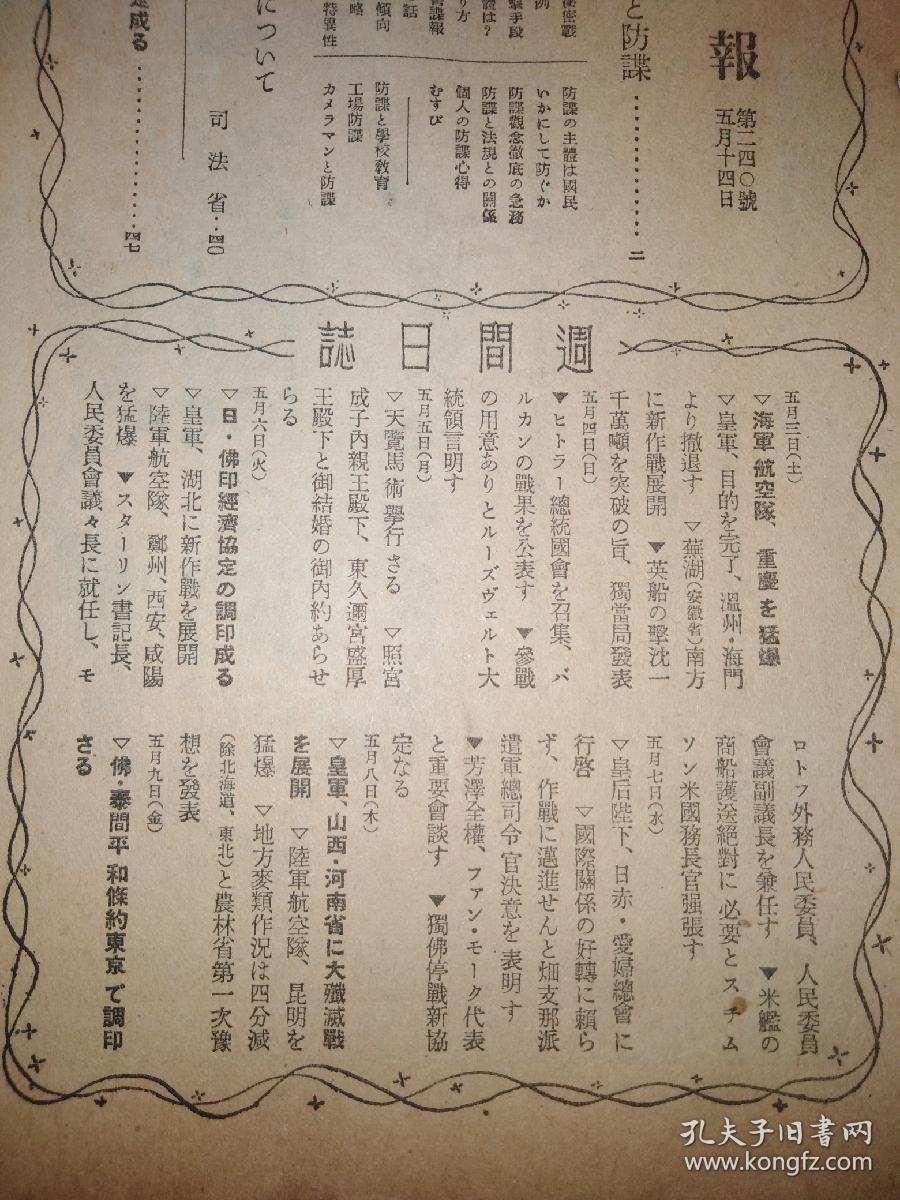 報
第二四〇號
五月十四日
と防諜‥‥‥‥‥‥‥二
秘密戰
例
撃手段
體は?
り方
諜報
話
傾向
略
特異性
防諜の主體は國民
いかにして防ぐか
防諜觀念徹底の急務
防諜と法規との關係
個人の防諜心得
むすび
防諜と學校教育
工場防諜
カメラマンと防諜
について
司法省‥四〇
成る‥‥‥‥‥‥‥四七
週間日誌
五月三日(土)
▽海軍航空隊、重慶を猛爆
▽皇軍、目的を完了、溫州・海門
より撤退す ▽蕪湖(安徽省)南方
に新作戰展開 ▼英船の擊沈一
千萬噸を突破の旨、獨當局發表
五月四日(日)
▼ヒトラー總統國會を召集、バ
ルカンの戰果を公表す ▼參戰
の用意ありとルーズヴェルト大
統領言明す
五月五日(月)
▽天覽馬術擧行さる ▽照宮
成子內親王殿下、東久邇宮盛厚
王殿下と御結婚の御內約あらせ
らる
五月六日(火)
▽日・佛印經濟協定の調印成る
▽皇軍、湖北に新作戰を展開
▽陸軍航空隊、鄭州、西安、咸陽
を猛爆 ▼スターリン書記長、
人民委員會議々長に就任し、モ
ロトフ外務人民委員、人民委員
會議副議長を兼任す ▼米艦の
商船護送絕對に必要とスチム
ソン米國務長官强張す
五月七日(水)
▽皇后陛下、日赤・愛婦總會に
行啓 ▽國際關係の好轉に賴ら
ず、作戰に邁進せんと畑支那派
遣軍總司令官決意を表明す
▼芳澤全權、ファン・モーク代表
と重要會談す ▼獨佛停戰新協
定なる
五月八日(木)
▽皇軍、山西・河南省に大殲滅戰
を展開 ▽陸軍航空隊、昆明を
猛爆 ▽地方麥類作況は四分減
(除北海道、東北)と農林省第一次豫
想を發表
五月九日(金)
▽佛・泰間平和條約東京で調印
さる
孔夫子旧书网
www.kongfz.com